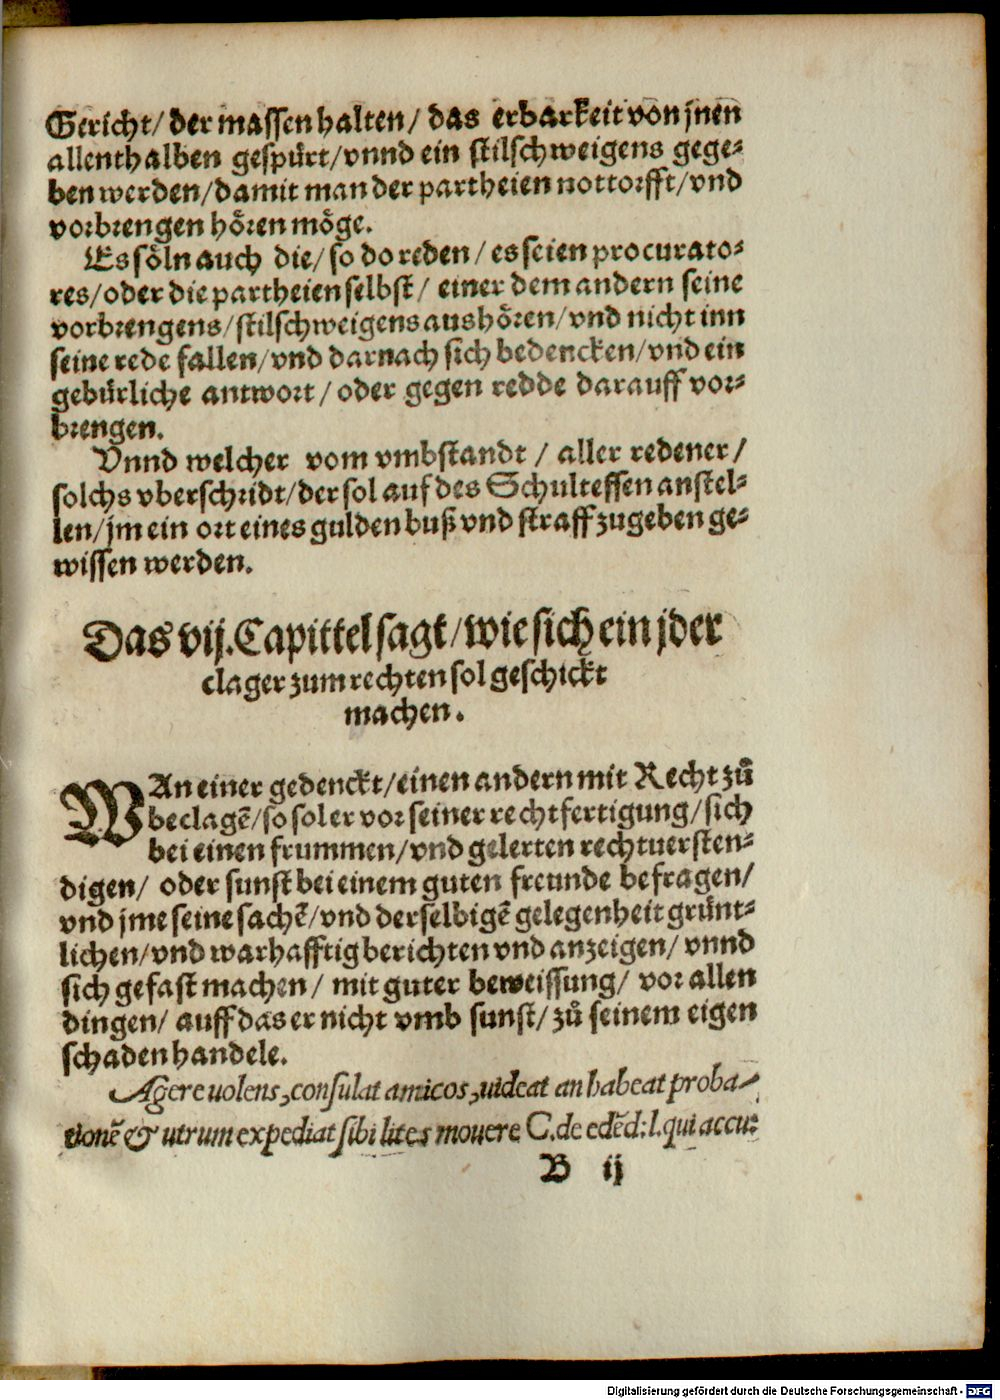 Gericht/ der massen halten/ das erbarkeit von jnen
allenthalben gespuͤrt/ vnnd ein stilschweigens gege⸗
ben werden/ damit man der partheien nottorfft/ vnd
vorbrengen hoͤren moͤge.
Es soͤln auch die/ so do reden/ es seien procurato⸗
res/ oder die partheien selbst/ einer dem andern seine
vorbrengens/ stilschweigens aushoͤren/ vnd nicht inn
seine rede fallen/ vnd darnach sich bedencken/ vnd ein
gebuͤrliche antwort/ oder gegen redde darauff vor⸗
brengen.
Vnnd welcher vom vmbstandt / aller redener/
solchs vberschridt/ der sol auf des Schultessen anstel⸗
len/ jm ein ort eines gulden buß vnd straff zugeben ge⸗
wissen werden.
Das vij. Capittel sagt/ wie sich ein jder
clager zum rechten sol geschickt
machen.
WAn einer gedenckt/ einen andern mit Recht zuͦ
beclagē/ so sol er vor seiner rechtfertigung/ sich
bei einen frummen/ vnd gelerten rechtuersten⸗
digen/ oder sunst bei einem guten freunde befragen/
vnd jme seine sachē/ vnd derselbigē gelegenheit gruͤnt⸗
lichen/ vnd warhafftig berichten vnd anzeigen/ vnnd
sich gefast machen/ mit guter beweissung/ vor allen
dingen/ auff das er nicht vmb sunst/ zuͦ seinem eigen
schaden handele.
Agere uolens, consulat amicos, uideat an habeat proba⸗
tionē & utrum expediat sibi lites mouere C. de edēd: l. qui accu⸗
B ij
Digitalisierung gefördert durch die Deutsche Forschungsgemeinschaft - DFG